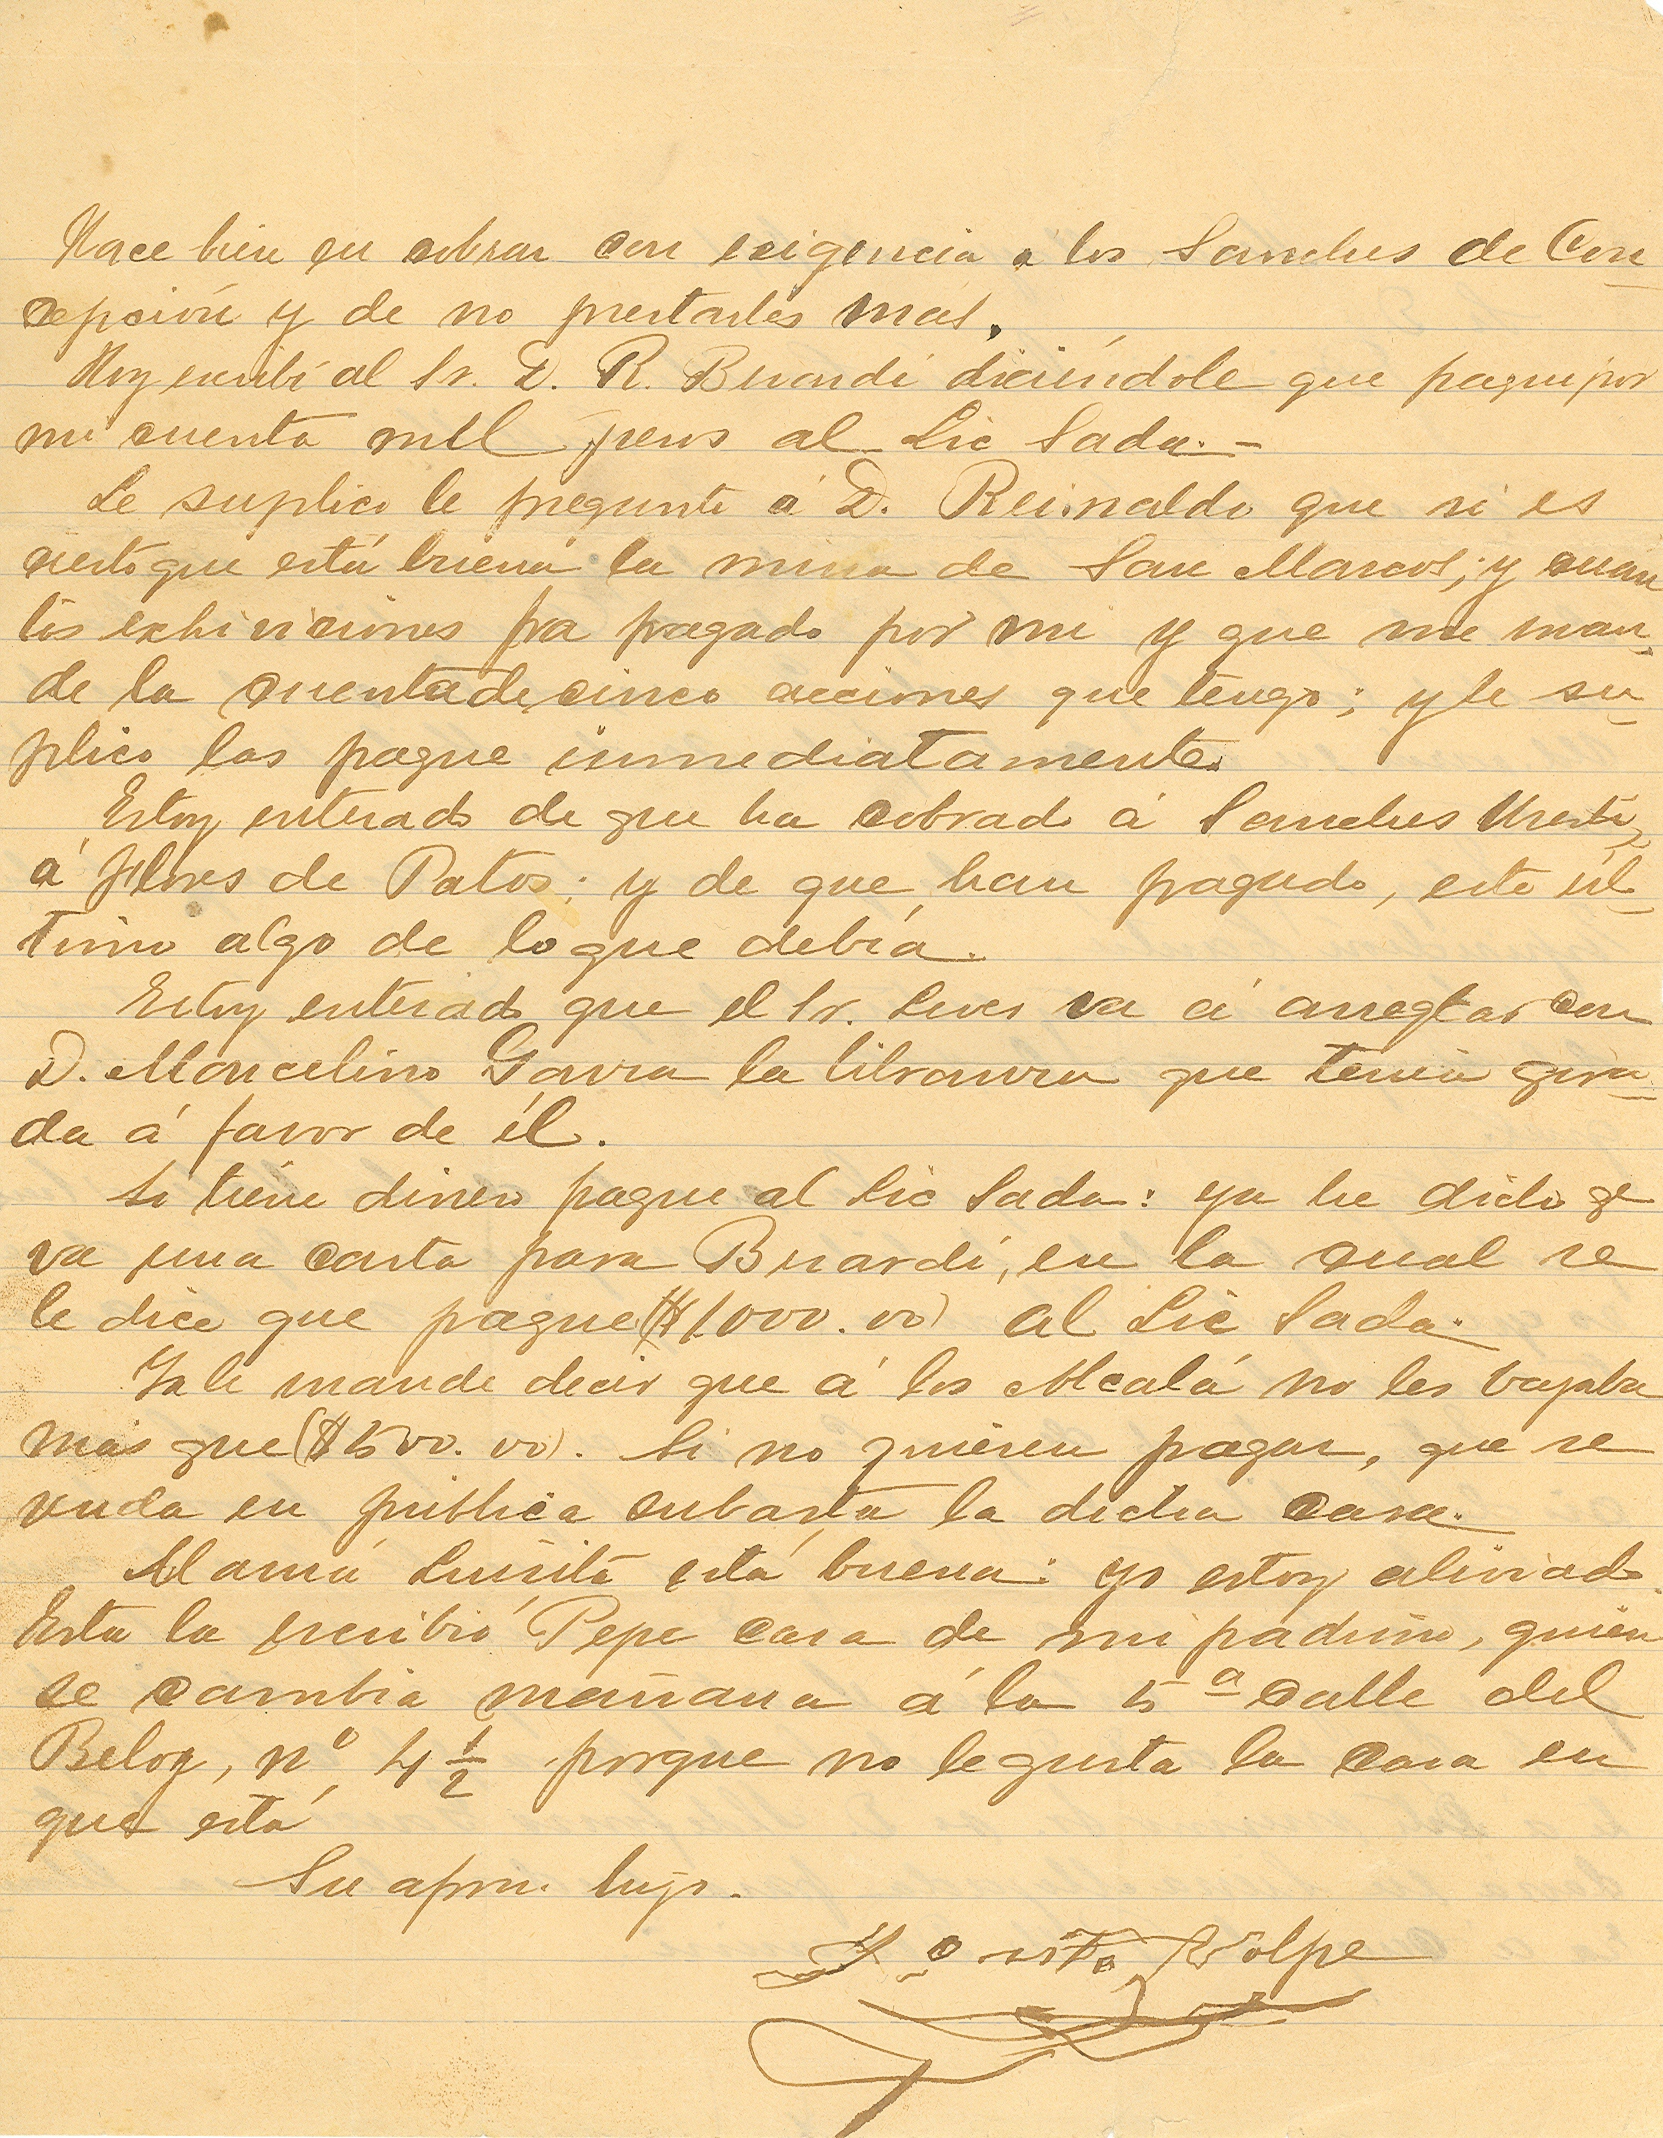 Hace bien en cobrar con exigencia a los Sanches de Con
cepción y de no prestarles mas.
Hoy escribí al Sr. D. R. Berardi diciéndole que pague por
mi cuenta mil pesos al Lic Sada.-
Le suplico le pregunte á D. Reinaldo que si es
cierto que está buena la mina de San Marcos; y cuan
tas exhiviciones ha pagado por mi y que me man-
de la cuenta de cinco acciones que tengo; y le su-
plico las pague inmediatamente.
Estoy enterado de que ha cobrado á Sanches Uresti,
á Flores de Patos; y de que han pagado, este úl-
timo algo de lo que debía.
Estoy enterado que el Sr. va á arreglar con
D. Marcelino Garza la libranza que tenia gira-
da á favor de él.
Si tiene dinero pague al Lic Sada: ya he dicho qe
va una carta para Berardi, en la cual se
le dice que pague ($1000.00) al Lic Sada.
Ya le mandé decir que á los Alcalá no les bajaba
mas que ($500.00). Si no quieren pagar, que se
venda en pública subasta la dicha casa.
Mamá Luisita está buena: yo estoy aliviado.
Esta la escribió Pepe casa de mi padrino, quien
se cambia mañana á la 5ª calle del
Reloz, nº 4 1/2 porque no le gusta la casa en
que está
Su afmo. hijo.
Volpe